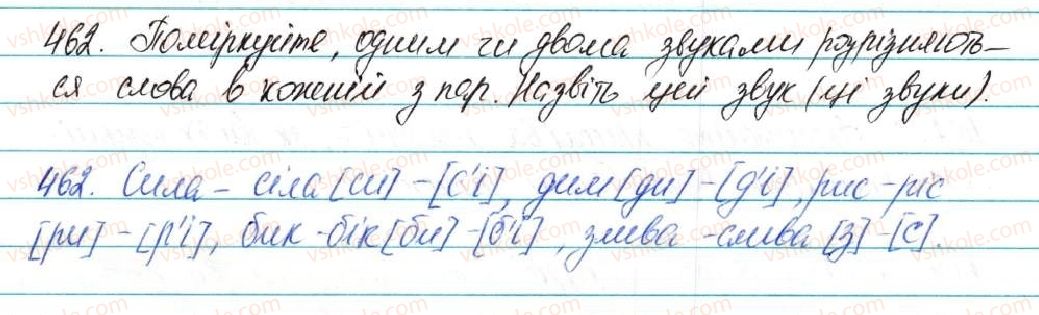 462. Поміркуйте, одним чи двома звуками розрізняють-
ся слова в кожній з пар. Назвіть цей звук (ці звуки).
462. Сила – сіла [си] – [с'і], дим [ди] – [д'і], рис – ріс
[ри] – [р'і], бик - бік [би] – [б'і], злива – слива [з] – [с].